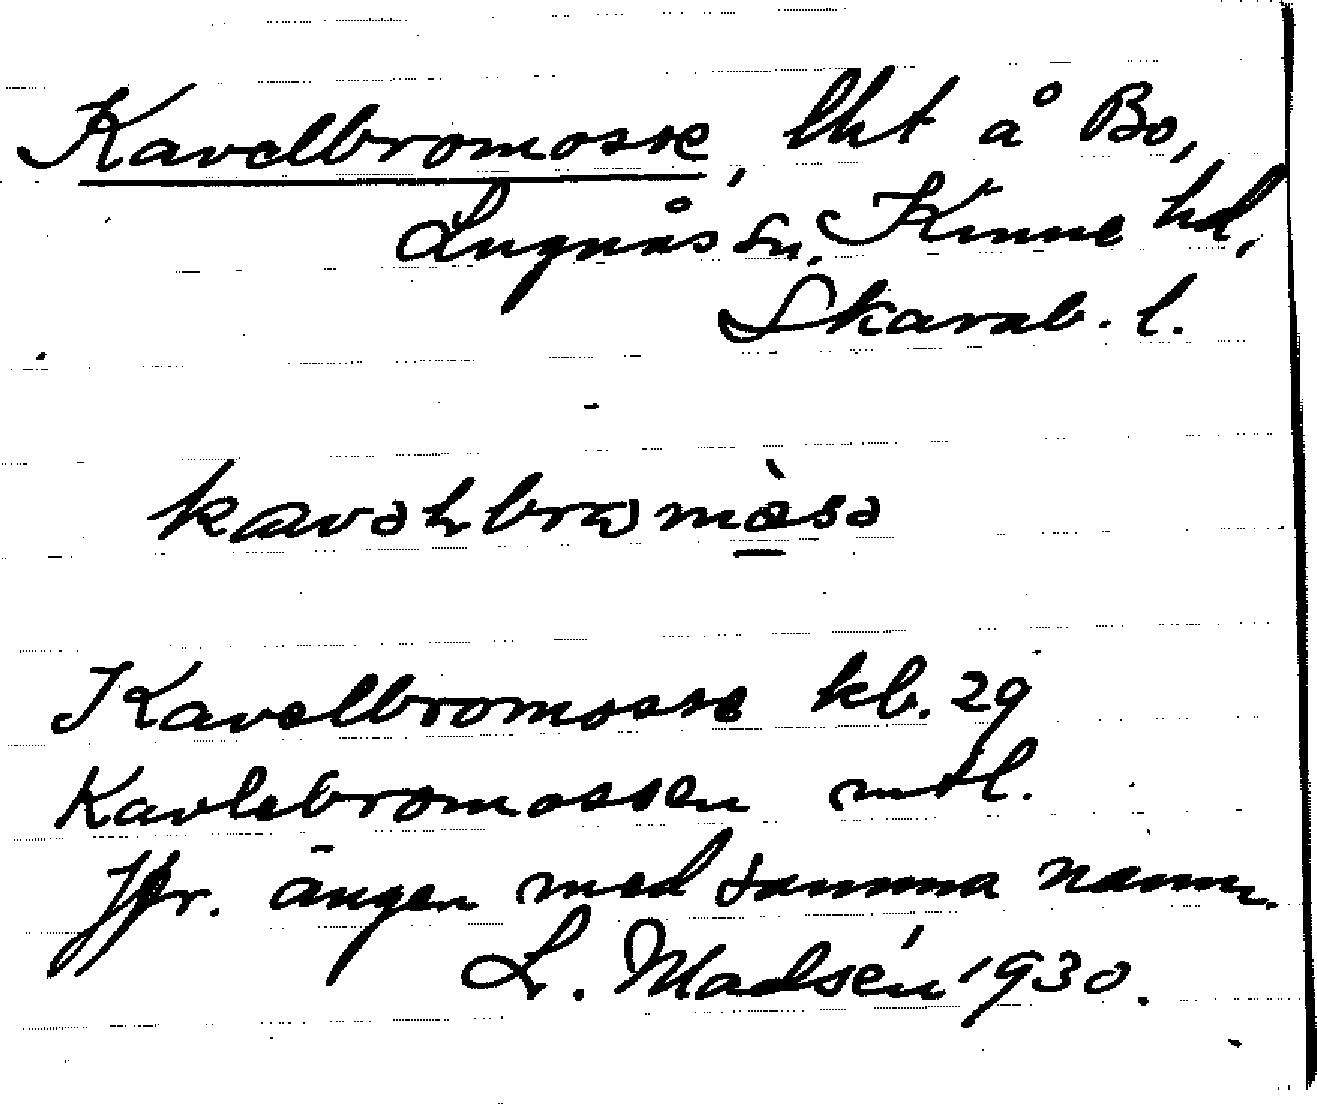 Kavelbromosse, lht å Bo,
Lugnås sn. Kinne hd,
Skarab. l.
Kavelbromosse kb. 29
Kavlebromossen mtl.
Jfr. ängen med samma namn.
L. Madsén 1930.